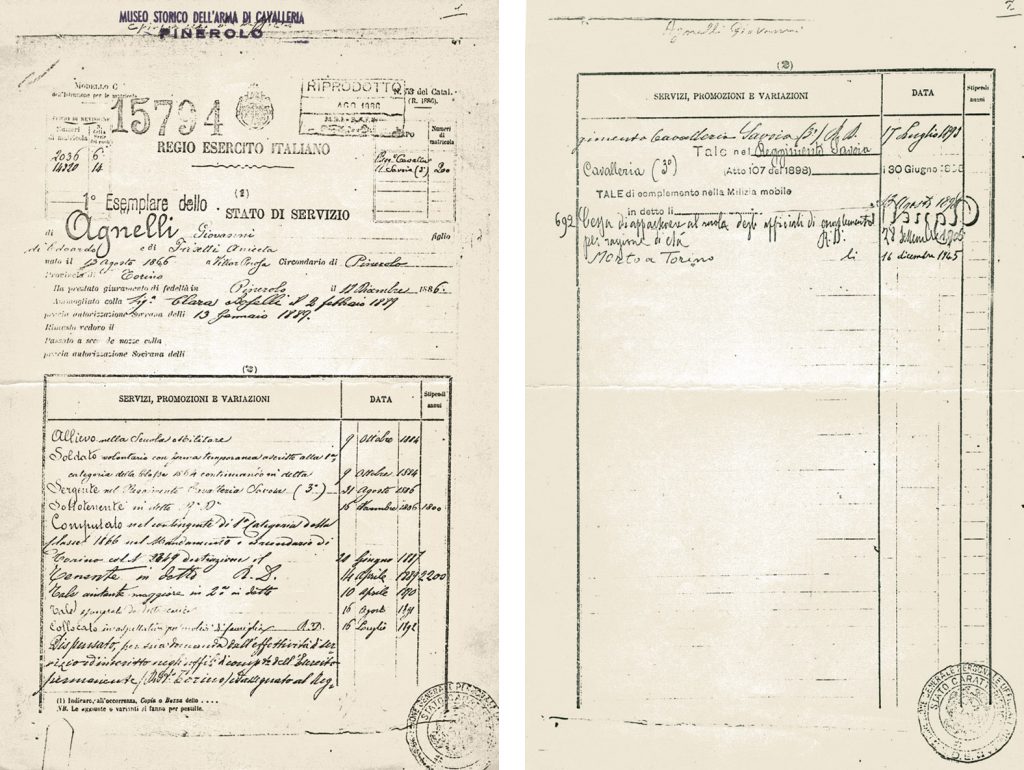 MUSEO STORICO DELL'ARMA DI CAVALLERIA
PINEROLO
MODELLO C
15794
RIPRODOTTO
AGO 1986
N. 53 del Catal.
(R. 1886).
REGIO ESERCITO ITALIANO
Numeri di matricola
2036 6
14220 14
Savoia (3°) 200
(1)
1° Esemplare dello STATO DI SERVIZIO
di Agnelli Giovanni
di Edoardo e di Frisetti Aniceta figlio
nato il 13 Agosto 1866 a Villar Perosa Circondario di Pinerolo
Provincia di Torino
Ha prestato giuramento di fedeltà in Pinerolo il 12 Dicembre 1886.
Ammogliato colla Sig.a Clara Boselli il 2 febbraio 1889
previa autorizzazione Sovrana delli 13 Gennaio 1889.
Rimasto vedovo il
Passato a seconde nozze colla
previa autorizzazione Sovrana delli
(2)
SERVIZI, PROMOZIONI E VARIAZIONI DATA Stipendi annui
Allievo nella Scuola Militare 9 Ottobre 1884
Soldato volontario con ferma temporanea ascritto alla 1a
categoria della Classe 1864 continuando in detta 9 Ottobre 1884
Sergente nel Reggimento Cavalleria Savoia (3°) 21 Agosto 1886
Sottotenente in detto R. D. 1886 1800
Computato nel contingente di 1a Categoria della
classe 1866 nel Mandamento e Circondario di
Torino col N. 2649 d'estrazione il 20 Giugno 1887
Tenente in detto R. D. 14 Aprile 1889 2200
Tale aiutante maggiore in 2° in detto 10 Aprile 1890
Tale esonerato da tale carica 16 Agosto 1891
Collocato in aspettativa per motivi di famiglia R. D. 16 Luglio 1892
Dispensato, per sua domanda dall'effettività di ser-
vizio ed inscritto negli uffic. di compto dell'Esercito
permanente (Dist. Torino) ed assegnato al Reg-
(1) Indicare, all'occorrenza, Copia o Bozza dello . . . .
NB. Le aggiunte o varianti si fanno per postille.
STATO CARATT
2
Agnelli Giovanni
(2)
SERVIZI, PROMOZIONI E VARIAZIONI DATA Stipendi annui
gimento Cavalleria Savoia (3°) R. D. 17 Luglio 1893
Tale nel Reggimento Savoia
Cavalleria (3°) (Atto 107 del 1898) li 30 Giugno 1898
TALE di complemento nella Milizia mobile
in detto li
692 Cessa di appartenere al ruolo degli ufficiali di complemento
per ragione di età R. D. 28 Settembre 1905
Morto a Torino li 16 dicembre 1945
STATO CARATT